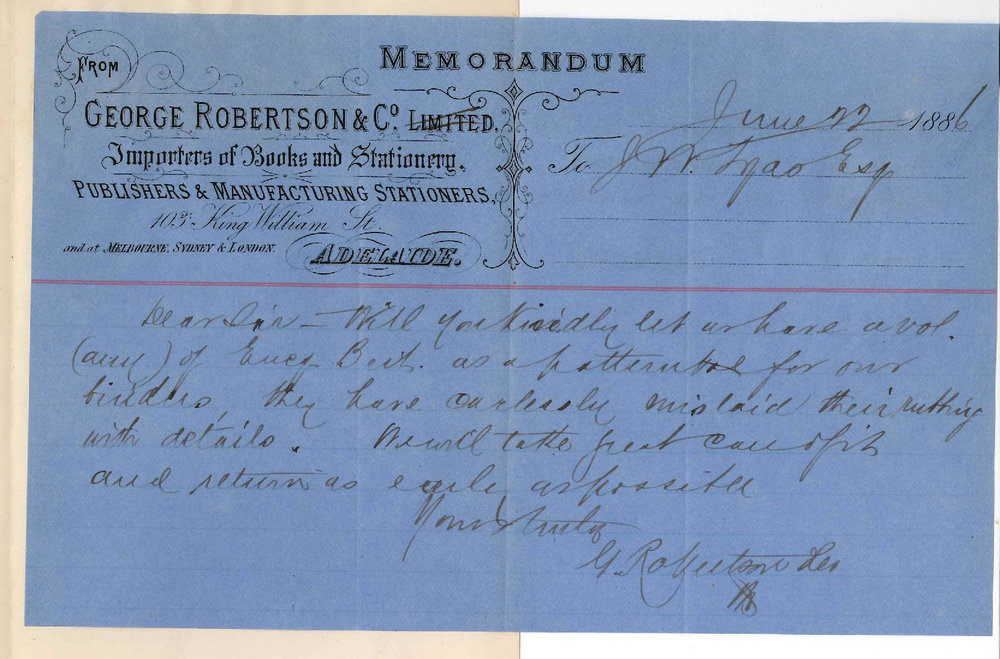 MEMORANDUM
FROM
GEORGE ROBERTSON & Co. LIMITED.
Importers of Books and Stationery,
PUBLISHERS & MANUFACTURING STATIONERS,
103 King William St
and at MELBOURNE, SYDNEY & LONDON.
ADELAIDE.
June 22 1886
To J W. Esq
Dear Sir – Will you kindly let us have a vol.
(any) of Ency. Brit. as a pattern for our
binders, they have carlessly mislaid their rubbing
with details. We will take great care of it
and return as early as possible
Yours truly
G. Robertson & Co